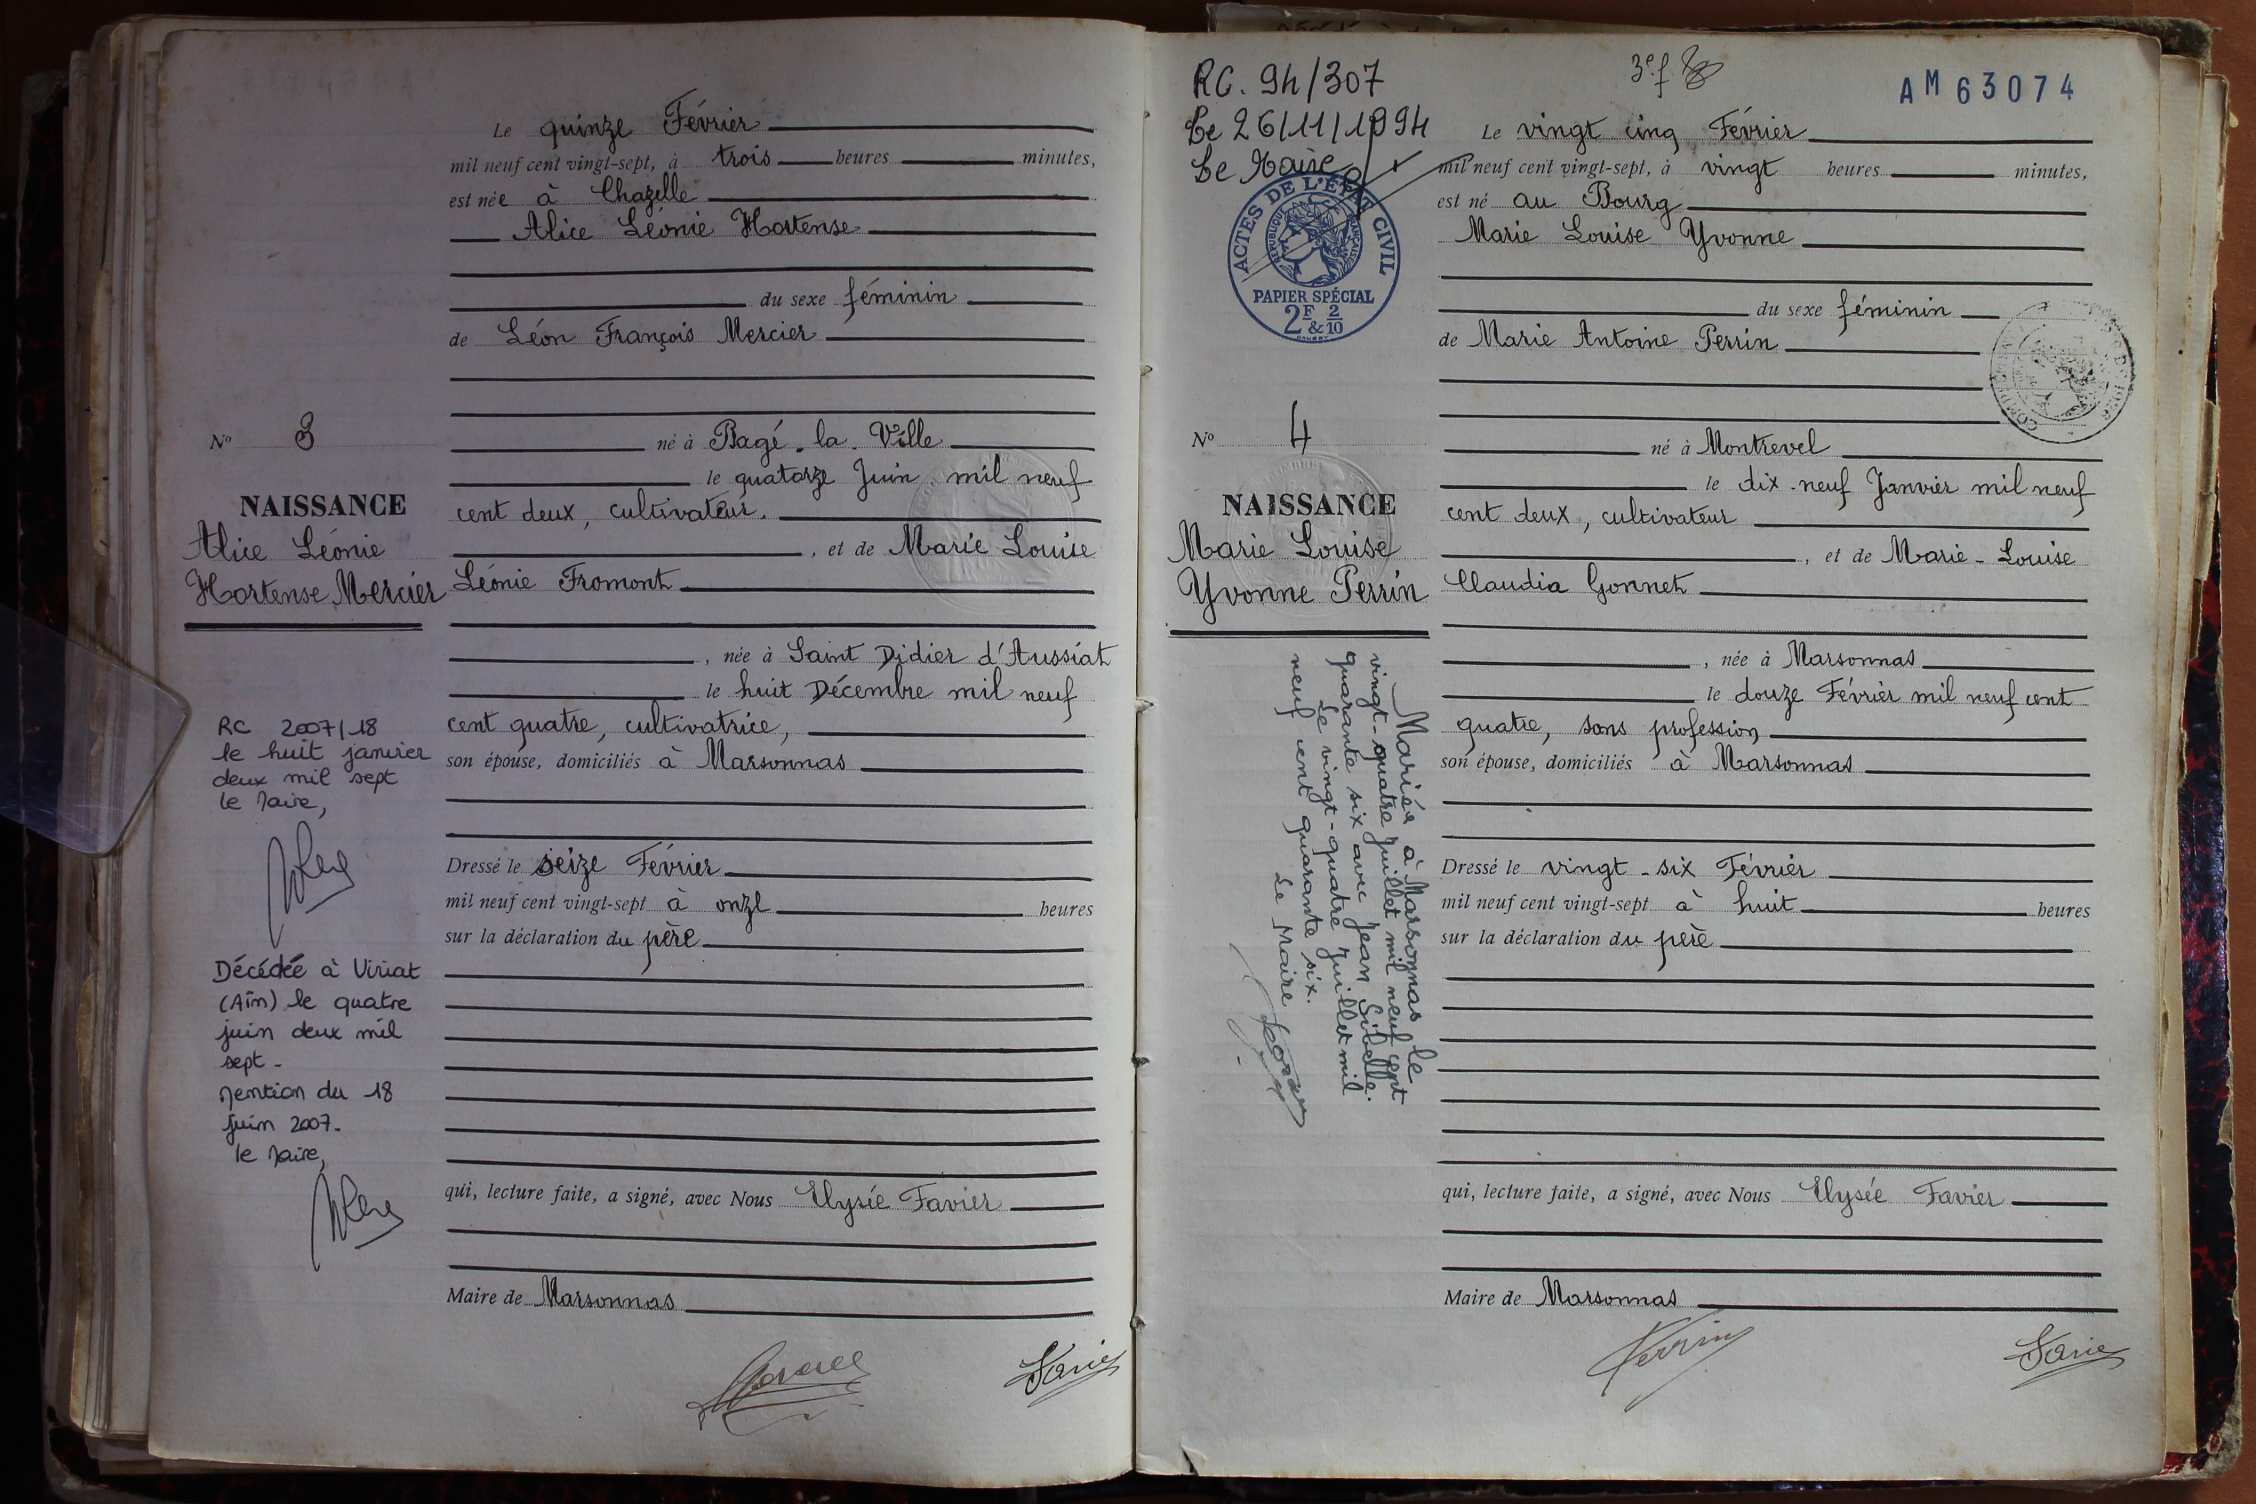 Le quinze Février
mil neuf cent vingt-sept, à trois heures minutes,
est née à Chazelle
Alice Léonie Hortense
du sexe féminin
de Léon François Mercier
né à Bagé-la-Ville
le quatorze Juin mil neuf
cent deux, cultivateur.
, et de Marie Louise
Léonie Fromont
, née à Saint Didier d'Aussiat
le huit Décembre mil neuf
cent quatre, cultivatrice,
son épouse, domiciliés à Marsonnas
Dressé le seize Février
mil neuf cent vingt-sept à onze heures
sur la déclaration du père
qui, lecture faite, a signé, avec Nous Elysée Favier
Maire de Marsonnas
Nº 3
NAISSANCE
Alice Léonie
Hortense Mercier
RC 2007/18
le huit janvier
deux mil sept
le Maire,
Décédée à Viriat
(Ain) le quatre
juin deux mil
sept -
Mention du 18
juin 2007-
le Maire,
RC. 94/307
Le 26/11/1994
Le Maire
ACTES DE L'ÉTAT CIVIL
RÉPUBLIQUE FRANÇAISE
PAPIER SPÉCIAL
2F & 2/10
3e f
AM63074
Le vingt cinq Février
mil neuf cent vingt-sept, à vingt heures minutes,
est né au Bourg
Marie Louise Yvonne
du sexe féminin
de Marie Antoine Perrin
né à Montrevel
le dix-neuf Janvier mil neuf
cent deux, cultivateur
, et de Marie-Louise
Claudia Gonnet
, née à Marsonnas
le douze Février mil neuf cent
quatre, sans profession
son épouse, domiciliés à Marsonnas
Dressé le vingt-six Février
mil neuf cent vingt-sept à huit heures
sur la déclaration du père
qui, lecture faite, a signé, avec Nous Elysée Favier
Maire de Marsonnas
Perrin
Nº 4
NAISSANCE
Marie Louise
Yvonne Perrin
Mariée à Marsonnas le
vingt-quatre Juillet mil neuf cent
quarante six avec Jean Sibelle.
Le vingt-quatre Juillet mil
neuf cent quarante six.
Le Maire